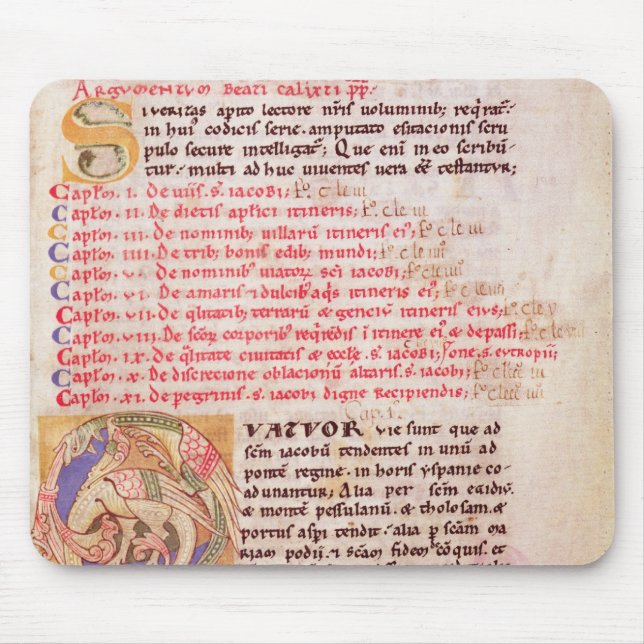 Argumentum Beati Calixti pp.
Si veritas apito lectore nr̄is voluminib; reqͥrat̄
in hui codicis serie. amputato esitacionis scru
pulo secure intelligat̄; Que eni in eo scribu
tur. multi ad huc viventes vera eē testantur;
Capłm. I. De viis. s̄. iacobi; fo. c le iii
Capłm. II. De dietis aptici itineris; fo. c le iii
Capłm. III. De nominib; villarū itineris ei; fo. c le iiii
Capłm. IIII. De trib; bonis edib; mundi; fo. c le iiii
Capłm. V. De nominib; viatorꝝ sc̄i iacobi; fo. c le iiii
Capłm. VI. De amaris & dulcib; aq̄s itineris ei; fo. c le iiii
Capłm. VII. De qͣlitatib; terrarū & genciū itineris eius; fo. c le v
Capłm. VIII. De sc̄orꝝ corporib; reqͥredis ī itinere ei; & de passi;
Capłm. IX. De qͣlitate civitatis & eccłe. s̄. iacobi;
Capłm. X. De discretione oblacionū altaris. s̄. iacobi;
Capłm. XI. De pegrinis. s̄. iacobi digne recipiendis;
Cap. 1.
QUATUOR vie sunt que ad
sc̄m iacobū tendentes in unū ad
pontē regine. in horis yspanie co
adunantur; Alia per sc̄m egidiū.
& montē pessulanū. & tholosam. &
portus aspi tendit. alia p sc̄am ma
riam podii. & sc̄am fidem cōquis. et